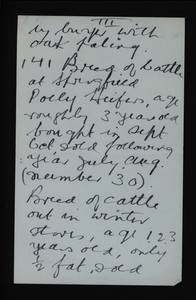 III
by buyer with
oak paling.
141 Breed of Cattle
at Springfield
Polly Heifers, age
roughly 3 years old
bought in Sept
Oct, sold following
year July, Aug.
(number 30).
Breed of cattle
out in winter
stores, age 1 2 3
years old, only
½ fat, sold